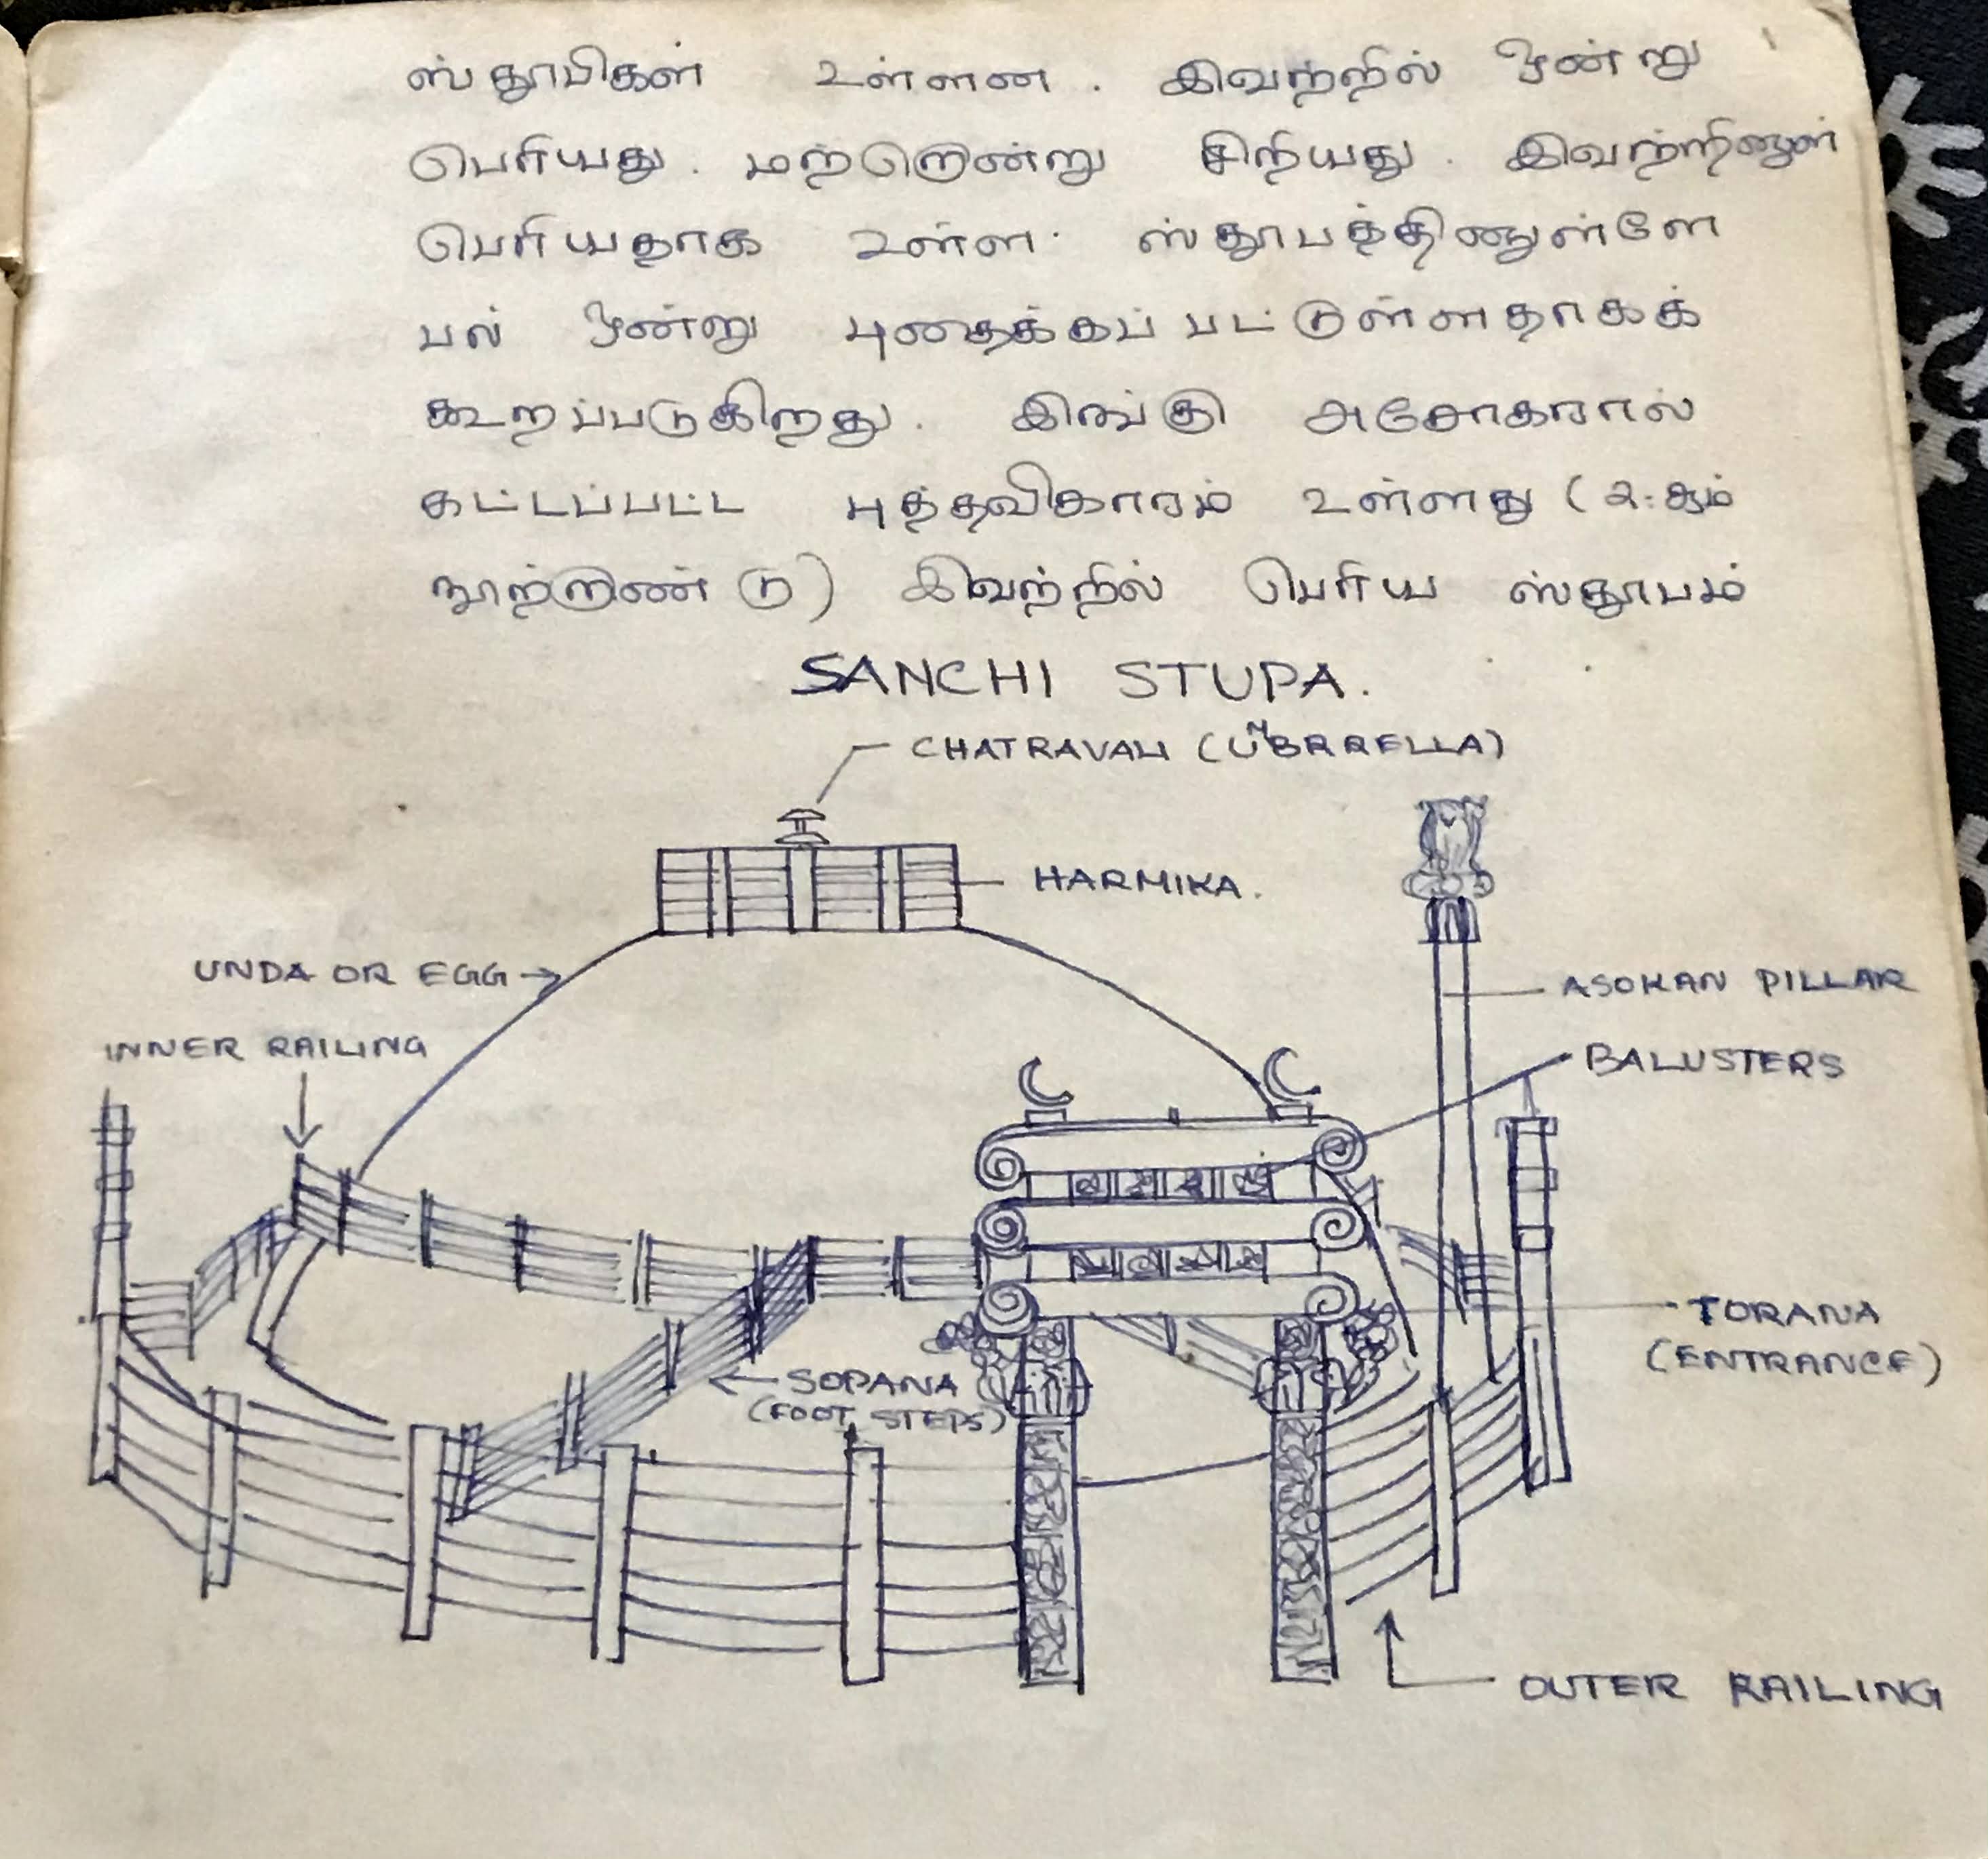 ஸ்தூபிகள் உள்ளன. இவற்றில் ஒன்று
பெரியது. மற்றொன்று சிறியது. இவற்றினுள்
பெரியதாக உள்ள ஸ்தூபத்தினுள்ளே
பல் ஒன்று புதைக்கப்பட்டுள்ளதாகக்
கூறப்படுகிறது. இங்கு அசோகரால்
கட்டப்பட்ட புத்தவிகாரம் உள்ளது (2.ஆம்
நூற்றாண்டு) இவற்றில் பெரிய ஸ்தூபம்
SANCHI STUPA.
CHATRAVALI (UMBRRELLA)
HARMIKA.
UNDA OR EGG
ASOKAN PILLAR
INNER RAILING
BALUSTERS
TORANA
(ENTRANCE)
SOPANA
(FOOT STEPS)
OUTER RAILING